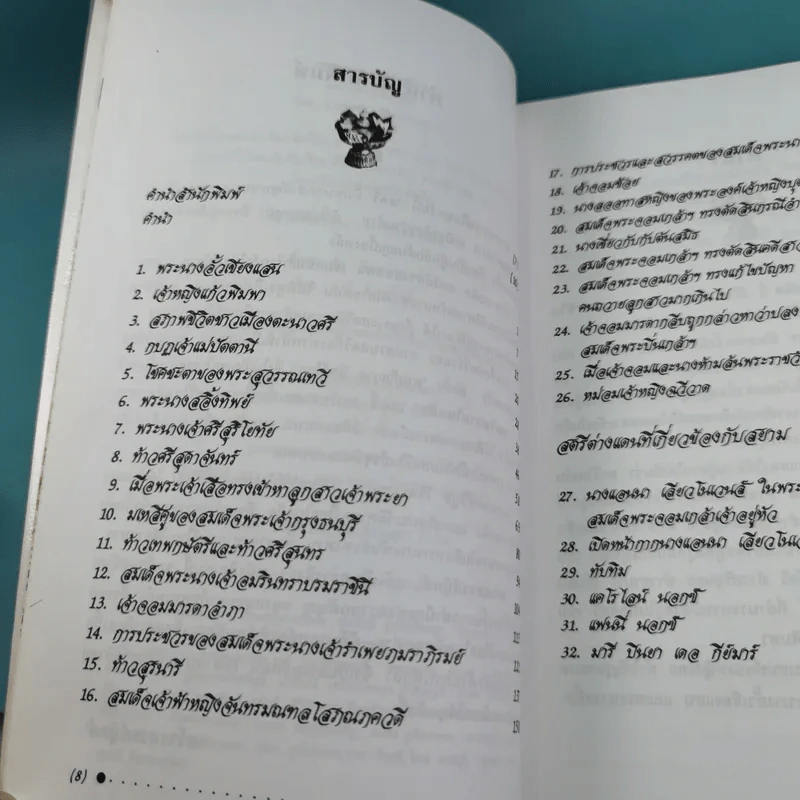 สารบัญ
คำนำสำนักพิมพ์
คำนำ
1. พระนางอั้วเชียงแสน
2. เจ้าหญิงแก้วพิมพา
3. สภาพชีวิตชาวเมืองตะนาวศรี
4. กบฏเจ้าแม่ปัตตานี
5. โชคชะตาของพระสุวรรณเทวี
6. พระนางสอิ้งทิพย์
7. พระนางเจ้าศรีสุริโยทัย
8. ท้าวศรีสุดาจันทร์
9. เมื่อพระเจ้าเสือทรงเข้าหาลูกสาวเจ้าพระยา
10. มเหสีคู่ของสมเด็จพระเจ้ากรุงธนบุรี
11. ท้าวเทพกษัตรีและท้าวศรีสุนทร
12. สมเด็จพระนางเจ้าอมรินทราบรมราชินี
13. เจ้าจอมมารดาอำภา
14. การประชวรของสมเด็จพระนางเจ้ารำเพยภมราภิรมย์
15. ท้าวสุรนารี
16. สมเด็จเจ้าฟ้าหญิงจันทรมณฑลโสภณภควดี
(8)
17. การประชวรและสวรรคตของสมเด็จพระนา
18. เจ้าจอมช้อย
19. นางสออทาสหญิงของพระองค์เจ้าหญิงบุต
20. สมเด็จพระจอมเกล้าฯ ทรงตัดสินกรณีอำ
21. นางเขียวกับกัปตันสมิธ
22. สมเด็จพระจอมเกล้าฯ ทรงตัดสินคดีสาว
23. สมเด็จพระจอมเกล้าฯ ทรงแก้ไขปัญหา
คนถวายลูกสาวมากเกินไป
24. เจ้าจอมมารดากลีบถูกกล่าวหาว่าปลง
สมเด็จพระปิ่นเกล้าฯ
25. เมื่อเจ้าจอมและนางห้ามล้นพระราชวัง
26. หม่อมเจ้าหญิงฉวีวาด
สตรีต่างแดนที่เกี่ยวข้องกับสยาม
27. นางแอนนา เลียวโนเวนส์ ในพระ
สมเด็จพระจอมเกล้าเจ้าอยู่หัว
28. เปิดหน้ากากนางแอนนา เลียวโนเว
29. ทับทิม
30. แคโรไลน์ นอกซ์
31. แฟนนี่ นอกซ์
32. มารี ปินยา เดอ กีย์มาร์